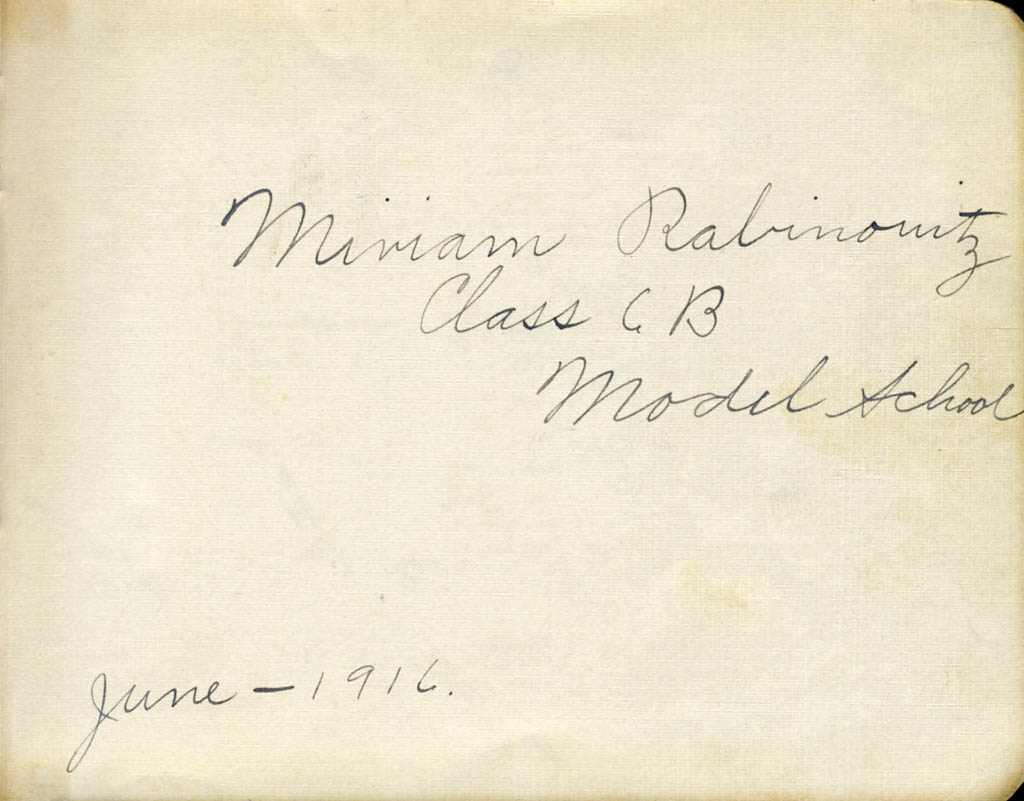 Miriam Rabinowitz
Class 6B
Model School
June - 1916.